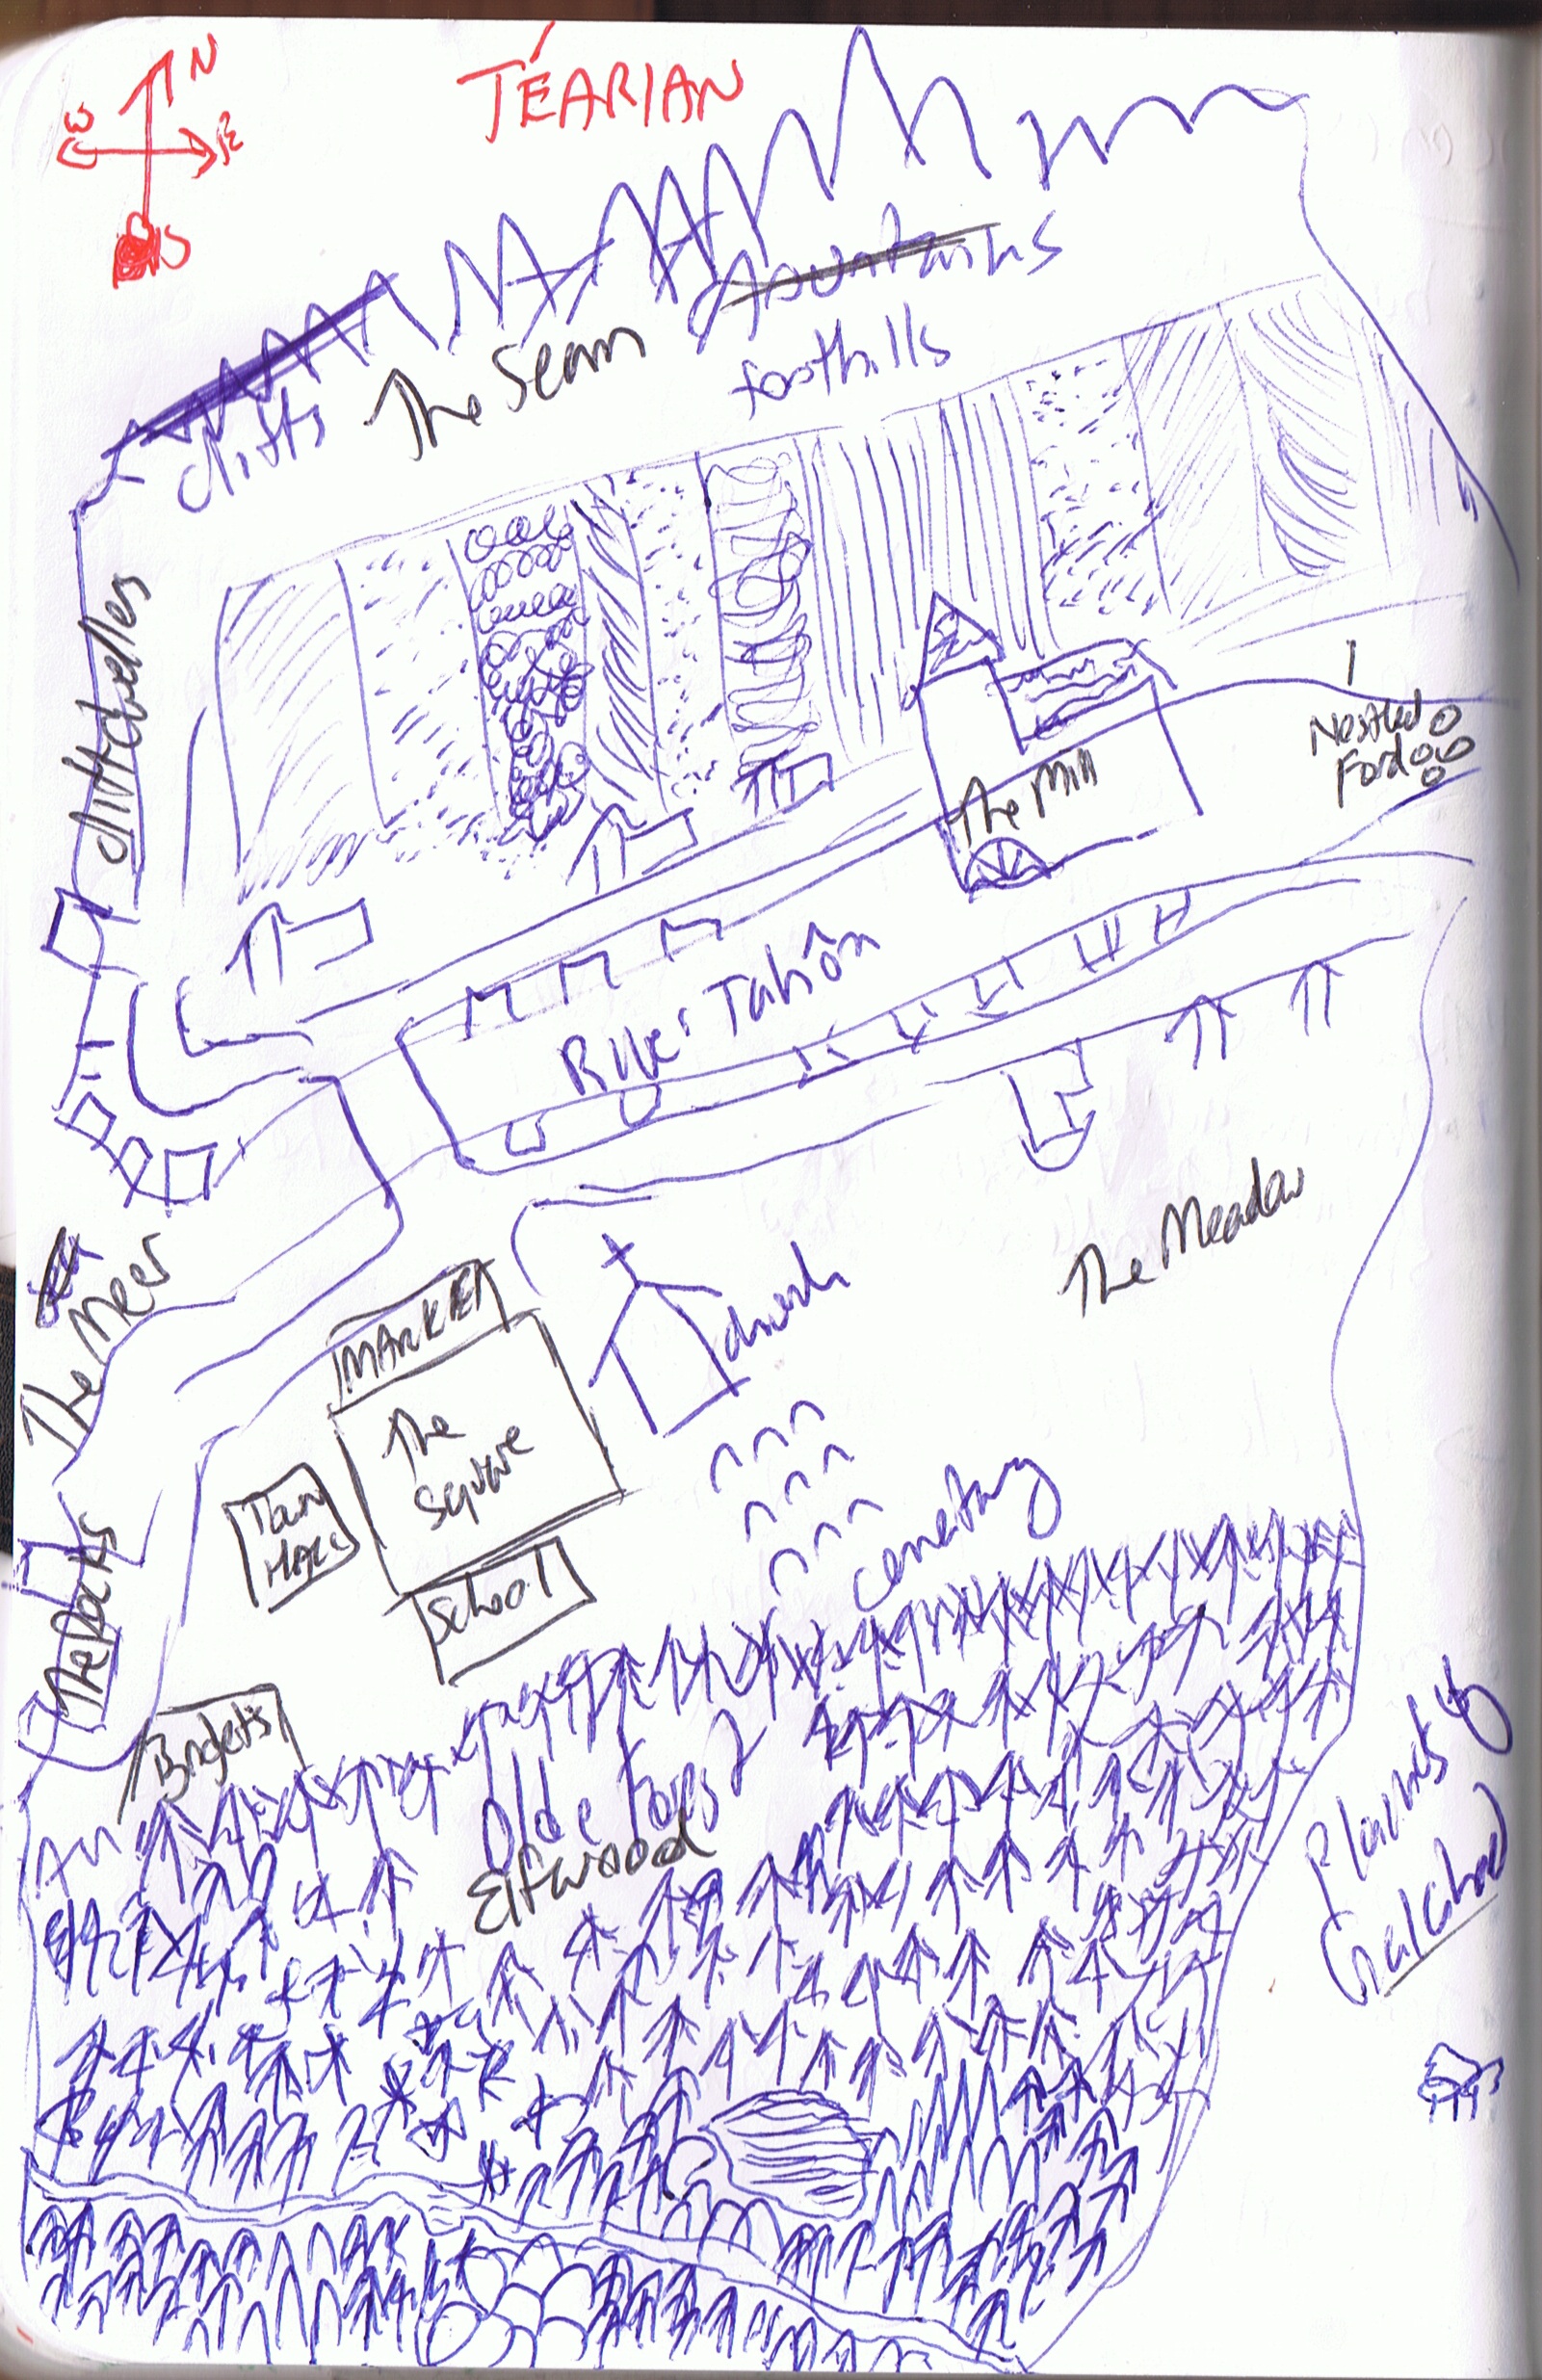 N
TÉARIAN
W
E
S
mountains
The Seam
foothills
cliffs
cliffdwelles
Nestled
Ford
The Mill
River Tahôn
The Meadow
The Meer
MARKET
church
The
Square
Town
HALL
cemetary
School
The Docks
Bridgett's
Olde Forest
Elfwood